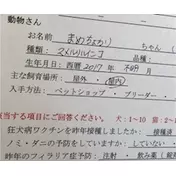 動物さん
お名前 まめちょわり ちゃん（
種類： コメルルインコ 品種：
生年月日：西暦 2017年 不明月
主な飼育場所： 屋外 ・ 屋内
入手方法：ペットショップ ・ ブリーダー ・
該当する項目にご回答ください。 犬→1～10 猫→2
狂犬病ワクチンを昨年接種しましたか： 接種済
ノミ・ダニの予防をしていますか： していない ・
昨年のフィラリア症予防： 注射 ・ 飲み薬（錠剤